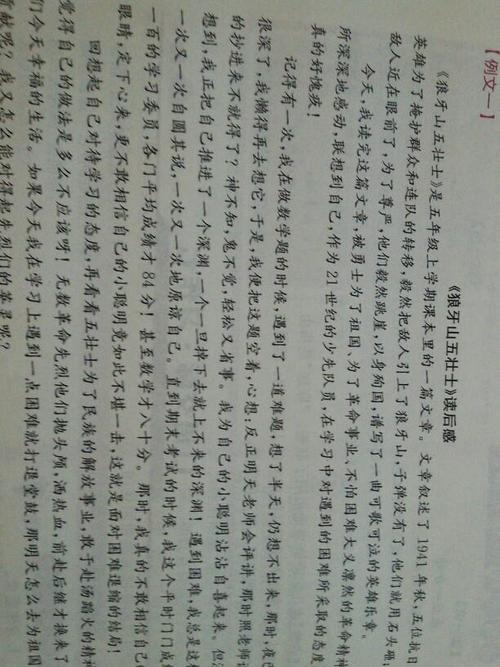 【例文一】
《狼牙山五壮士》读后感
《狼牙山五壮士》是五年级上学期课本里的一篇文章。文章叙述了1941年秋,五位抗日
英雄为了掩护群众和连队的转移,毅然把敌人引上了狼牙山,子弹没有了,他们就用石头砸;
敌人近在眼前了,为了尊严,他们毅然跳崖,以身殉国,谱写了一曲可歌可泣的英雄乐章。
今天,我读完这篇文章,被勇士为了祖国、为了革命事业、不怕困难大义凛然的革命精神
所深深地感动,联想到自己,作为21世纪的少先队员,在学习中对遇到的困难所采取的态度
真的好愧疚!
记得有一次,我在做数学题的时候,遇到了一道难题,想了半天,仍想不出来,那时,夜已
很深了,我懒得再去想它,于是,我便把这题空着,心想:反正明天老师会评讲,那时照老师讲
的抄进来不就得了?神不知,鬼不觉,轻松又省事。我为自己的小聪明沾沾自喜起来。但没
想到,我正把自己推进了一个深渊,一个一旦掉下去就上不来的深渊!遇到困难,我总是这样
一次又一次自圆其说,一次又一次地原谅自己。直到期末考试的时候,我这个平时门门成
一百的学习委员,各门平均成绩才84分!甚至数学才八十分。那时,我真的不敢相信自己
眼睛,定下心来,更不敢相信自己的小聪明竟如此不堪一击,这就是面对困难退缩的结局!
回想起自己对待学习的态度,再看看五壮士为了民族的解放事业,敢于赴汤蹈火的精神
觉得自己的做法是多么不应该呀!无数革命先烈他们抛头颅,洒热血,前赴后继才换来了
们今天幸福的生活。如果今天我在学习上遇到一点困难就打退堂鼓,那明天怎么去为祖国
贡献呢?我又怎么能对得起先烈们的革